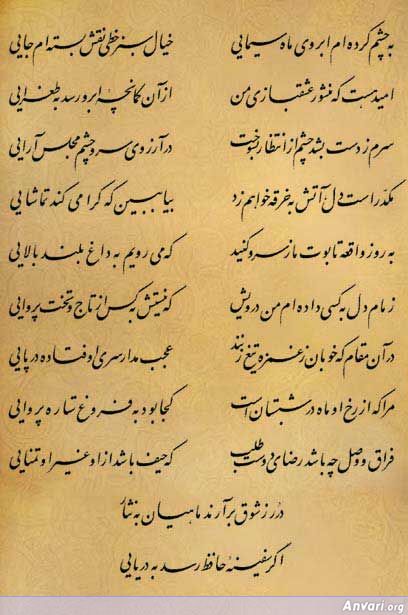 به چشم کرده ام ابروی ماه سیمایی خیال سبز خطی نقش بسته ام جایی
امید هست که منشور عشقبازی من از آن کمانچهٔ ابرو رسد به طغرایی
سرم ز دست بشد چشم از انتظار بسوخت در آرزوی سر و چشم مجلس آرایی
مکدر است دل آتش به خرقه خواهم زد بیا ببین که کرا می کند تماشایی
به روز واقعه تابوت ما ز سرو کنید که می رویم به داغ بلند بالایی
زمام دل به کسی داده ام من درویش که نیستش به کس از تاج و تخت پروایی
در آن مقام که خوبان ز غمزه تیغ زنند عجب مدار سری اوفتاده در پایی
مرا که از رخ او ماه در شبستان است کجا بود به فروغ ستاره پروایی
فراق و وصل چه باشد رضای دوست طلب که حیف باشد از او غیر او تمنایی
درر ز شوق برآرند ماهیان به نثار
اگر سفینهٔ حافظ رسد به دریایی
Anvari.org